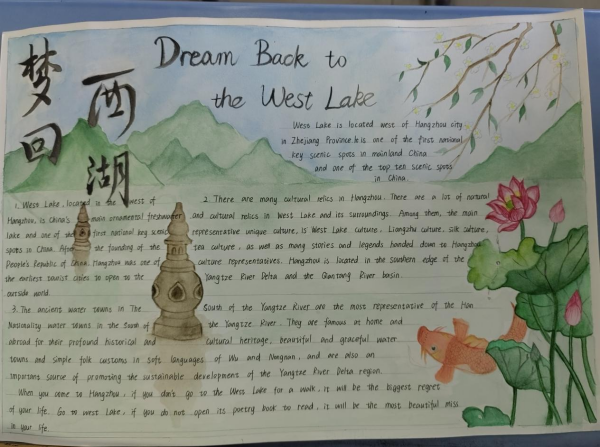 梦回
西湖
Dream Back to
the West Lake
West Lake is located west of Hangzhou city
in Zhejiang Province. It is one of the first national
key scenic spots in mainland China
and one of the top ten scenic spots
in China.
1. West Lake, located in the west of
Hangzhou, is China's main ornamental freshwater
lake and one of the first national key scenic
spots in China. After the founding of the
People's Republic of China, Hangzhou was one of
the earliest tourist cities to open to the
outside world.
2. There are many cultural relics in Hangzhou. There are a lot of natural
and cultural relics in West Lake and its surroundings. Among them, the main
representative unique culture, is West Lake culture, Liangzhu culture, silk culture,
tea culture, as well as many stories and legends handed down to Hangzhou
culture representatives. Hangzhou is located in the southern edge of the
Yangtze River Delta and the Qiantang River basin.
3. The ancient water towns in The South of the Yangtze River are the most representative of the Han
Nationality water towns in the South of the Yangtze River. They are famous at home and
abroad for their profound historical and cultural heritage, beautiful and graceful water
towns and simple folk customs in soft languages of Wu and Nongnan, and are also an
important source of promoting the sustainable development of the Yangtze River Delta region.
When you come to Hangzhou, if you don't go to the West Lake for a walk, it will be the biggest regret
of your life. Go to West Lake, if you do not open its poetry book to read, it will be the most beautiful miss
in your life.